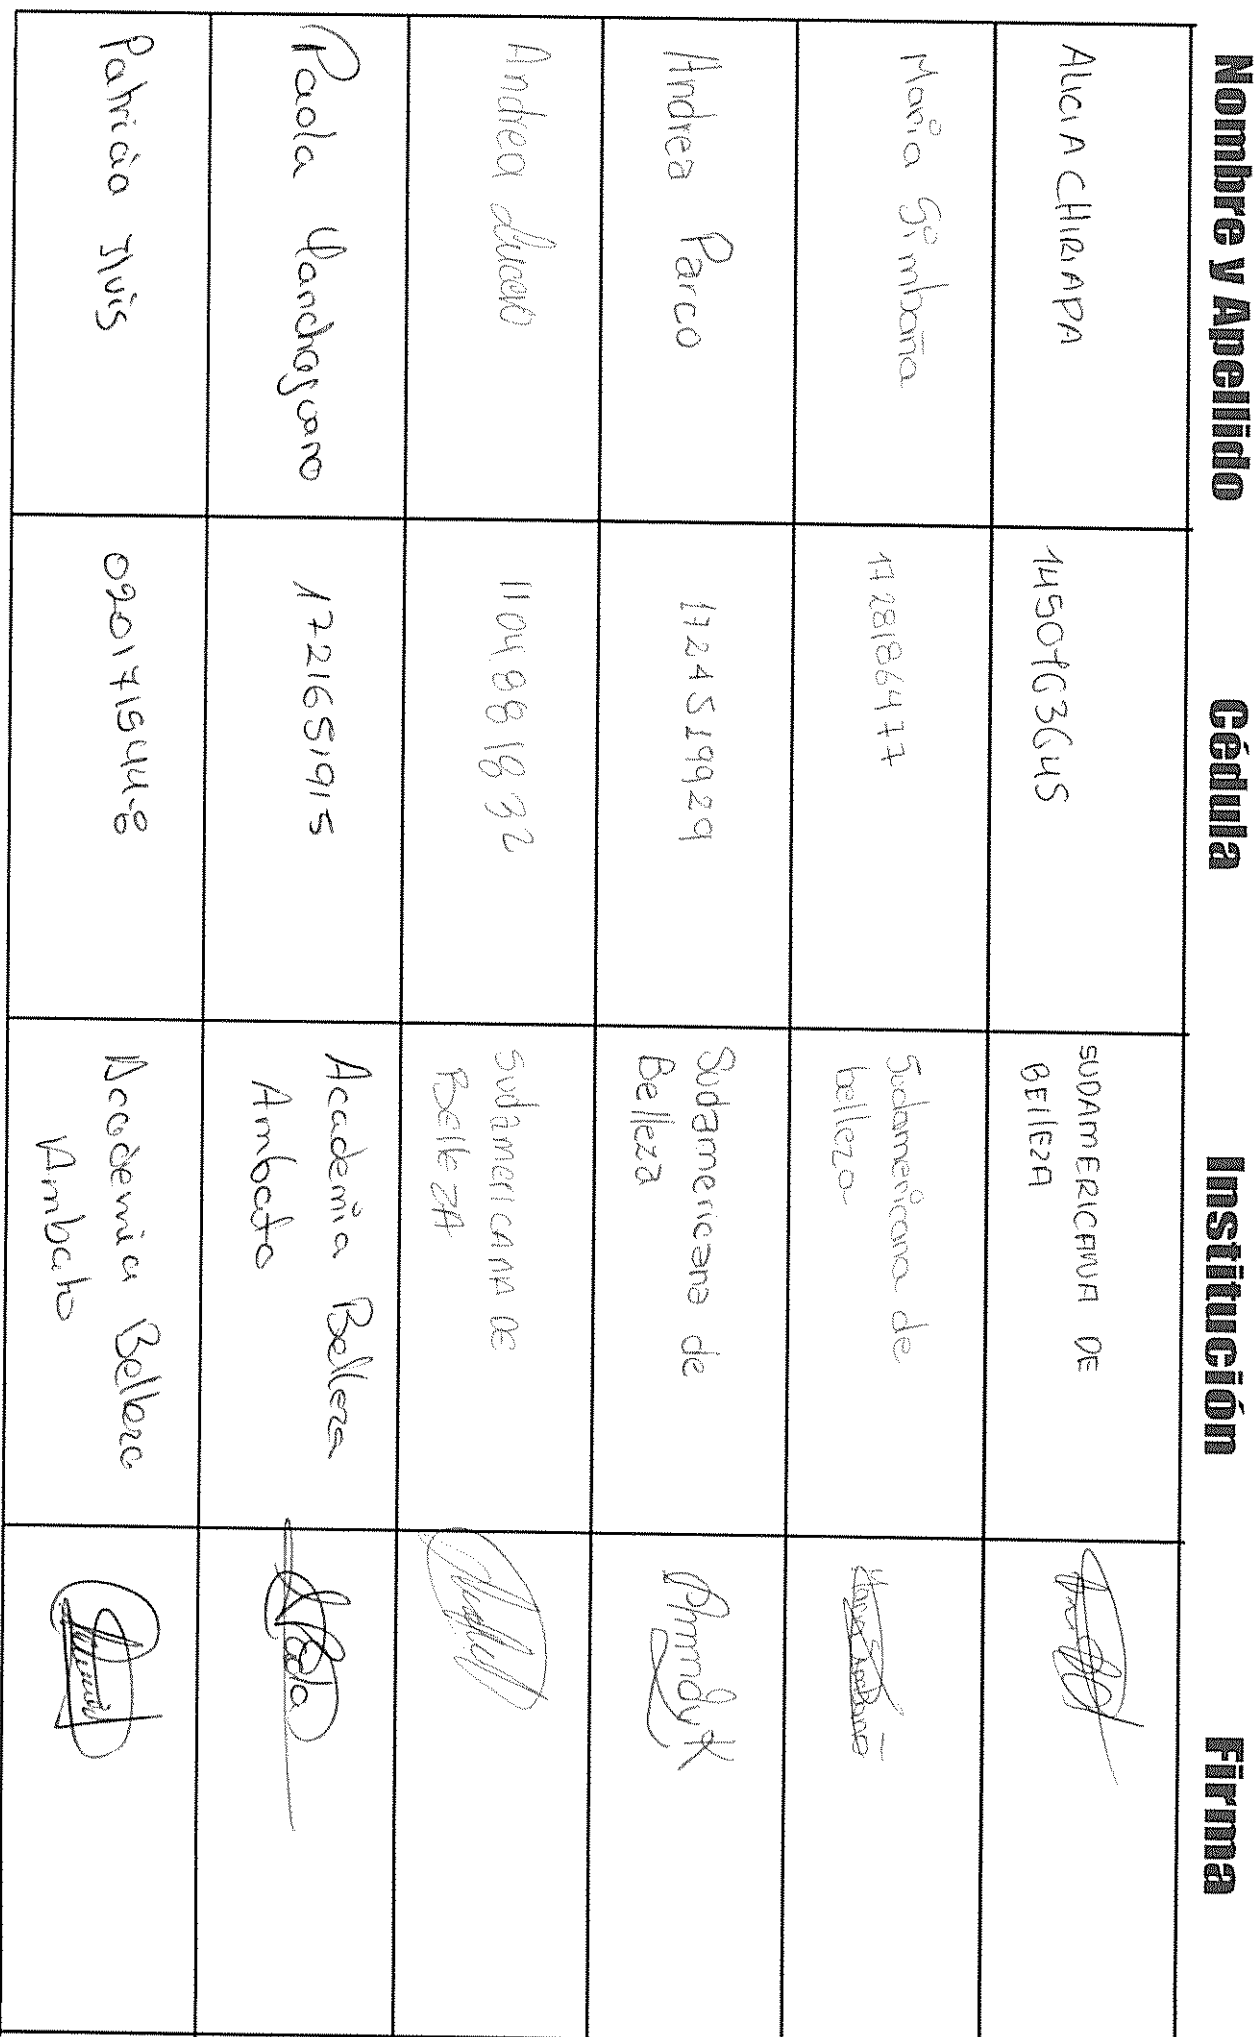 Nombre y Apellido Cédula Institución Firma
ALICIA CHIRIAPA 1450163645 SUDAMERICANA DE
BEllEZA
Maria Simbaña 1728186477 Sudamericana de
belleza
Andrea Parco 1724519929 Sudamericana de
Belleza
Andrea Lucero 1104881832 SudamericANA DE
BellEZA
Paola Yanchaguano 1721651915 Academia Belleza
Ambato
Patricia 020171544-8 Academia Belleza
Ambato